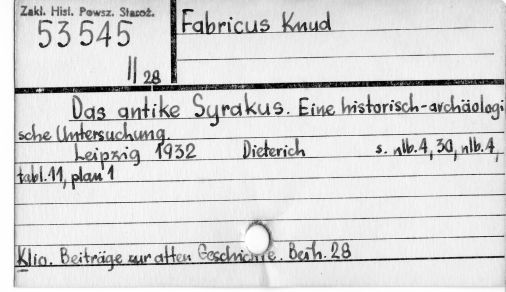 Zakl. Hist. Powsz. Staroż.
53 545
II 28
Fabricus Knud
Das antike Syrakus. Eine historisch-archäologi
sche Untersuchung.
Leipzig 1932 Dieterich s. nlb. 4, 30, nlb. 4,
tabl. 11, plan 1
Klio. Beiträge zur alten Geschichte. Beih. 28